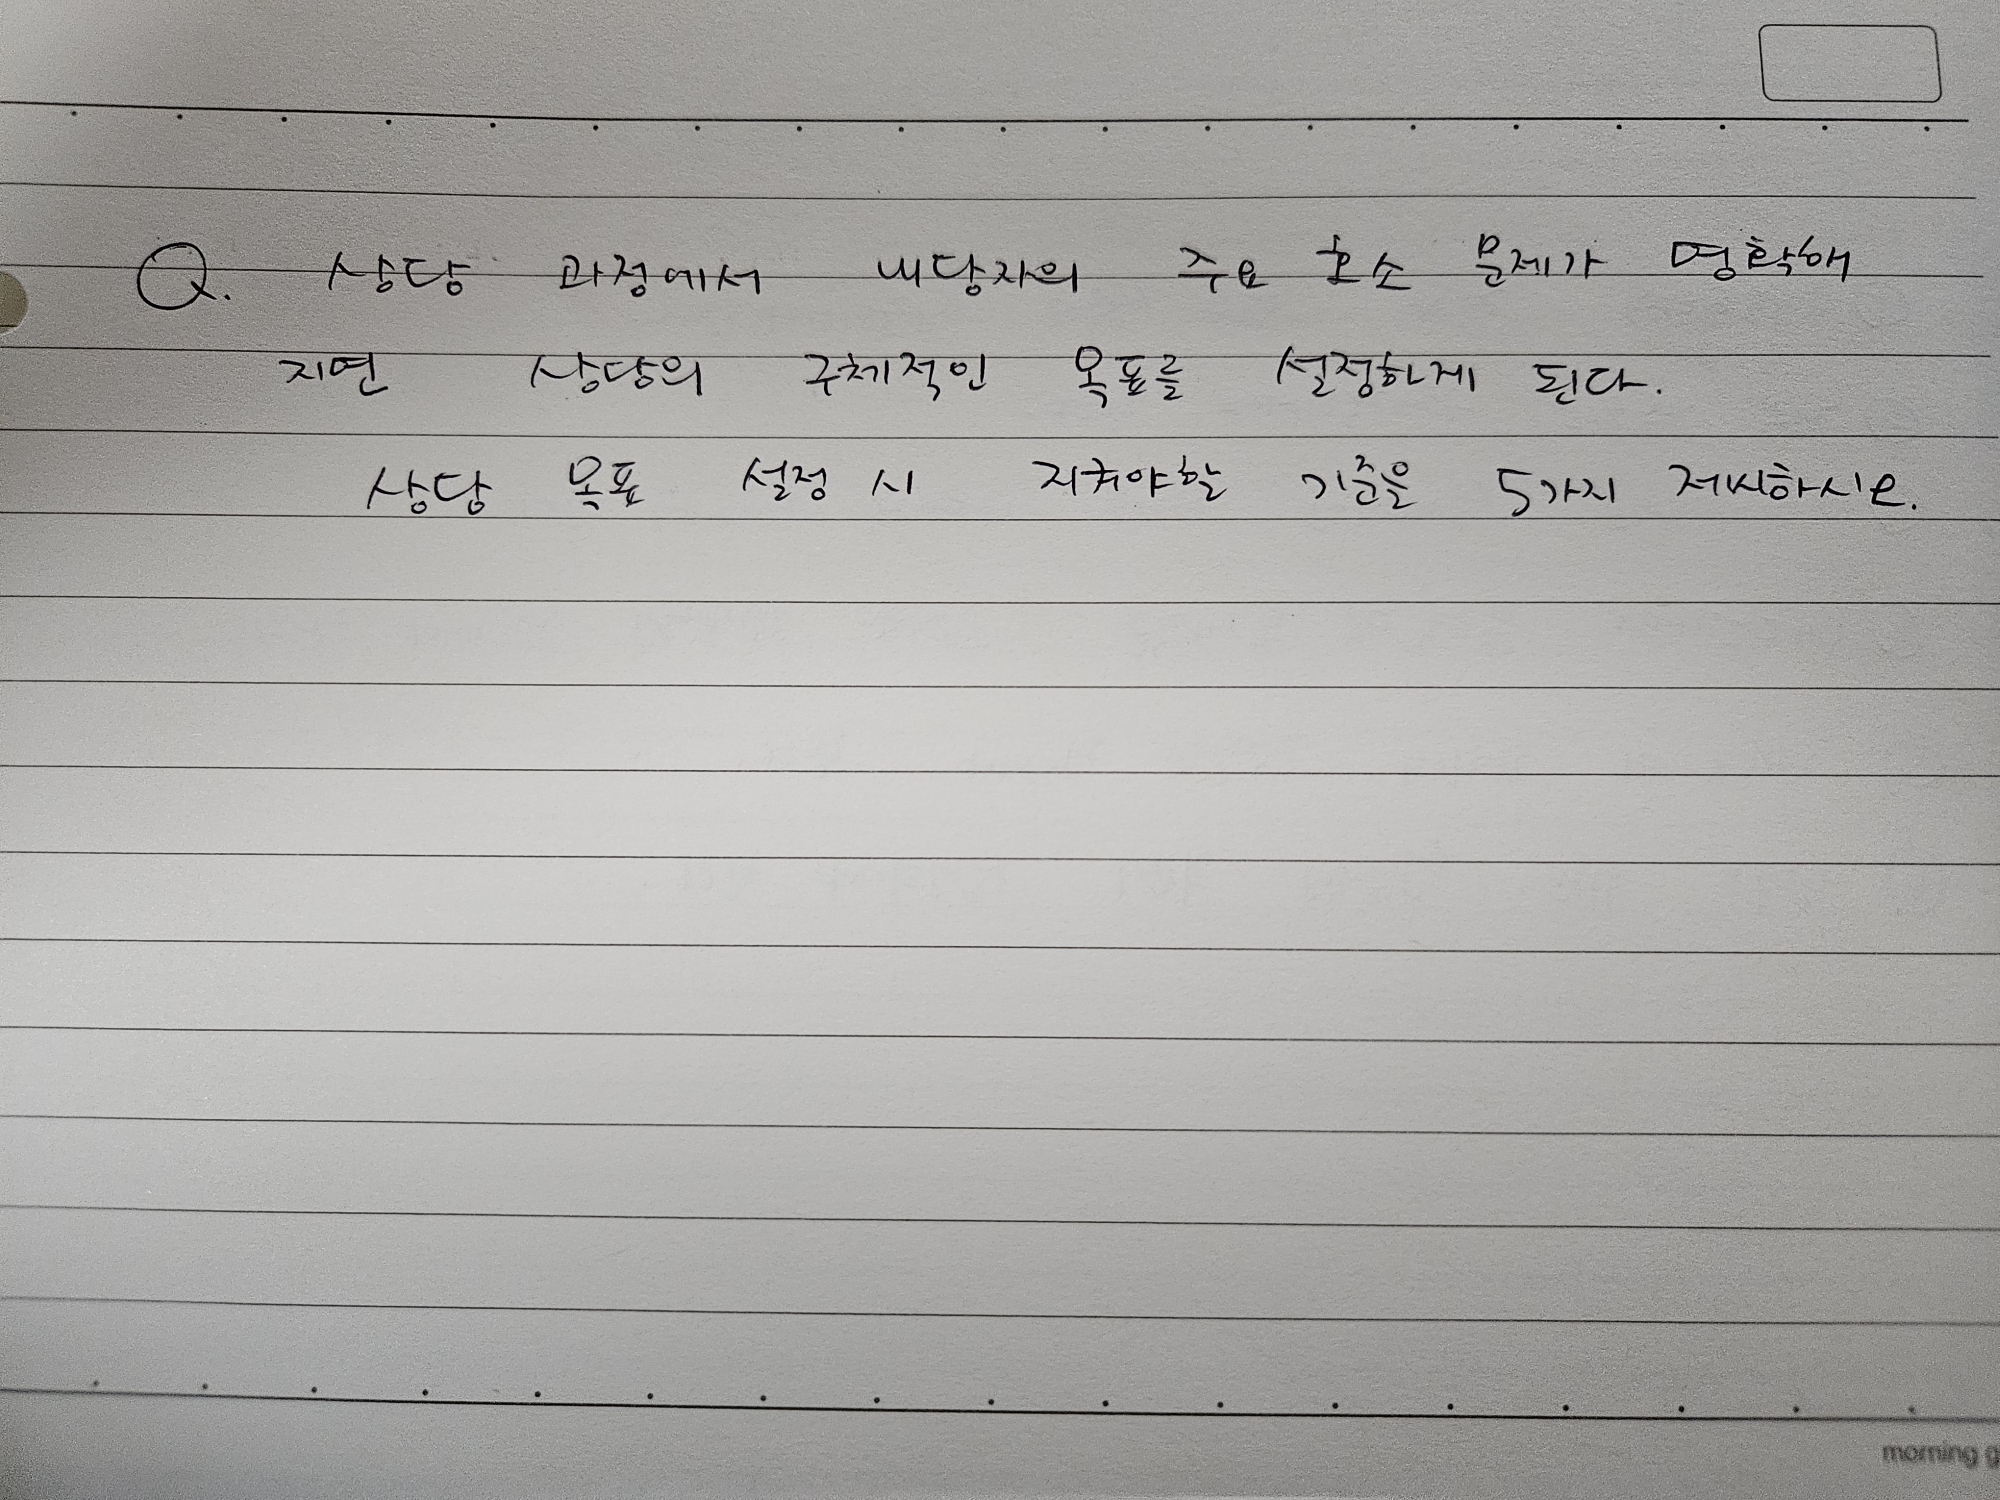 Q. 상담 과정에서 내담자의 주요 호소 문제가 명확해
지면 상담의 구체적인 목표를 설정하게 된다.
상담 목표 설정 시 지켜야할 기준을 5가지 제시하시오.
morning g